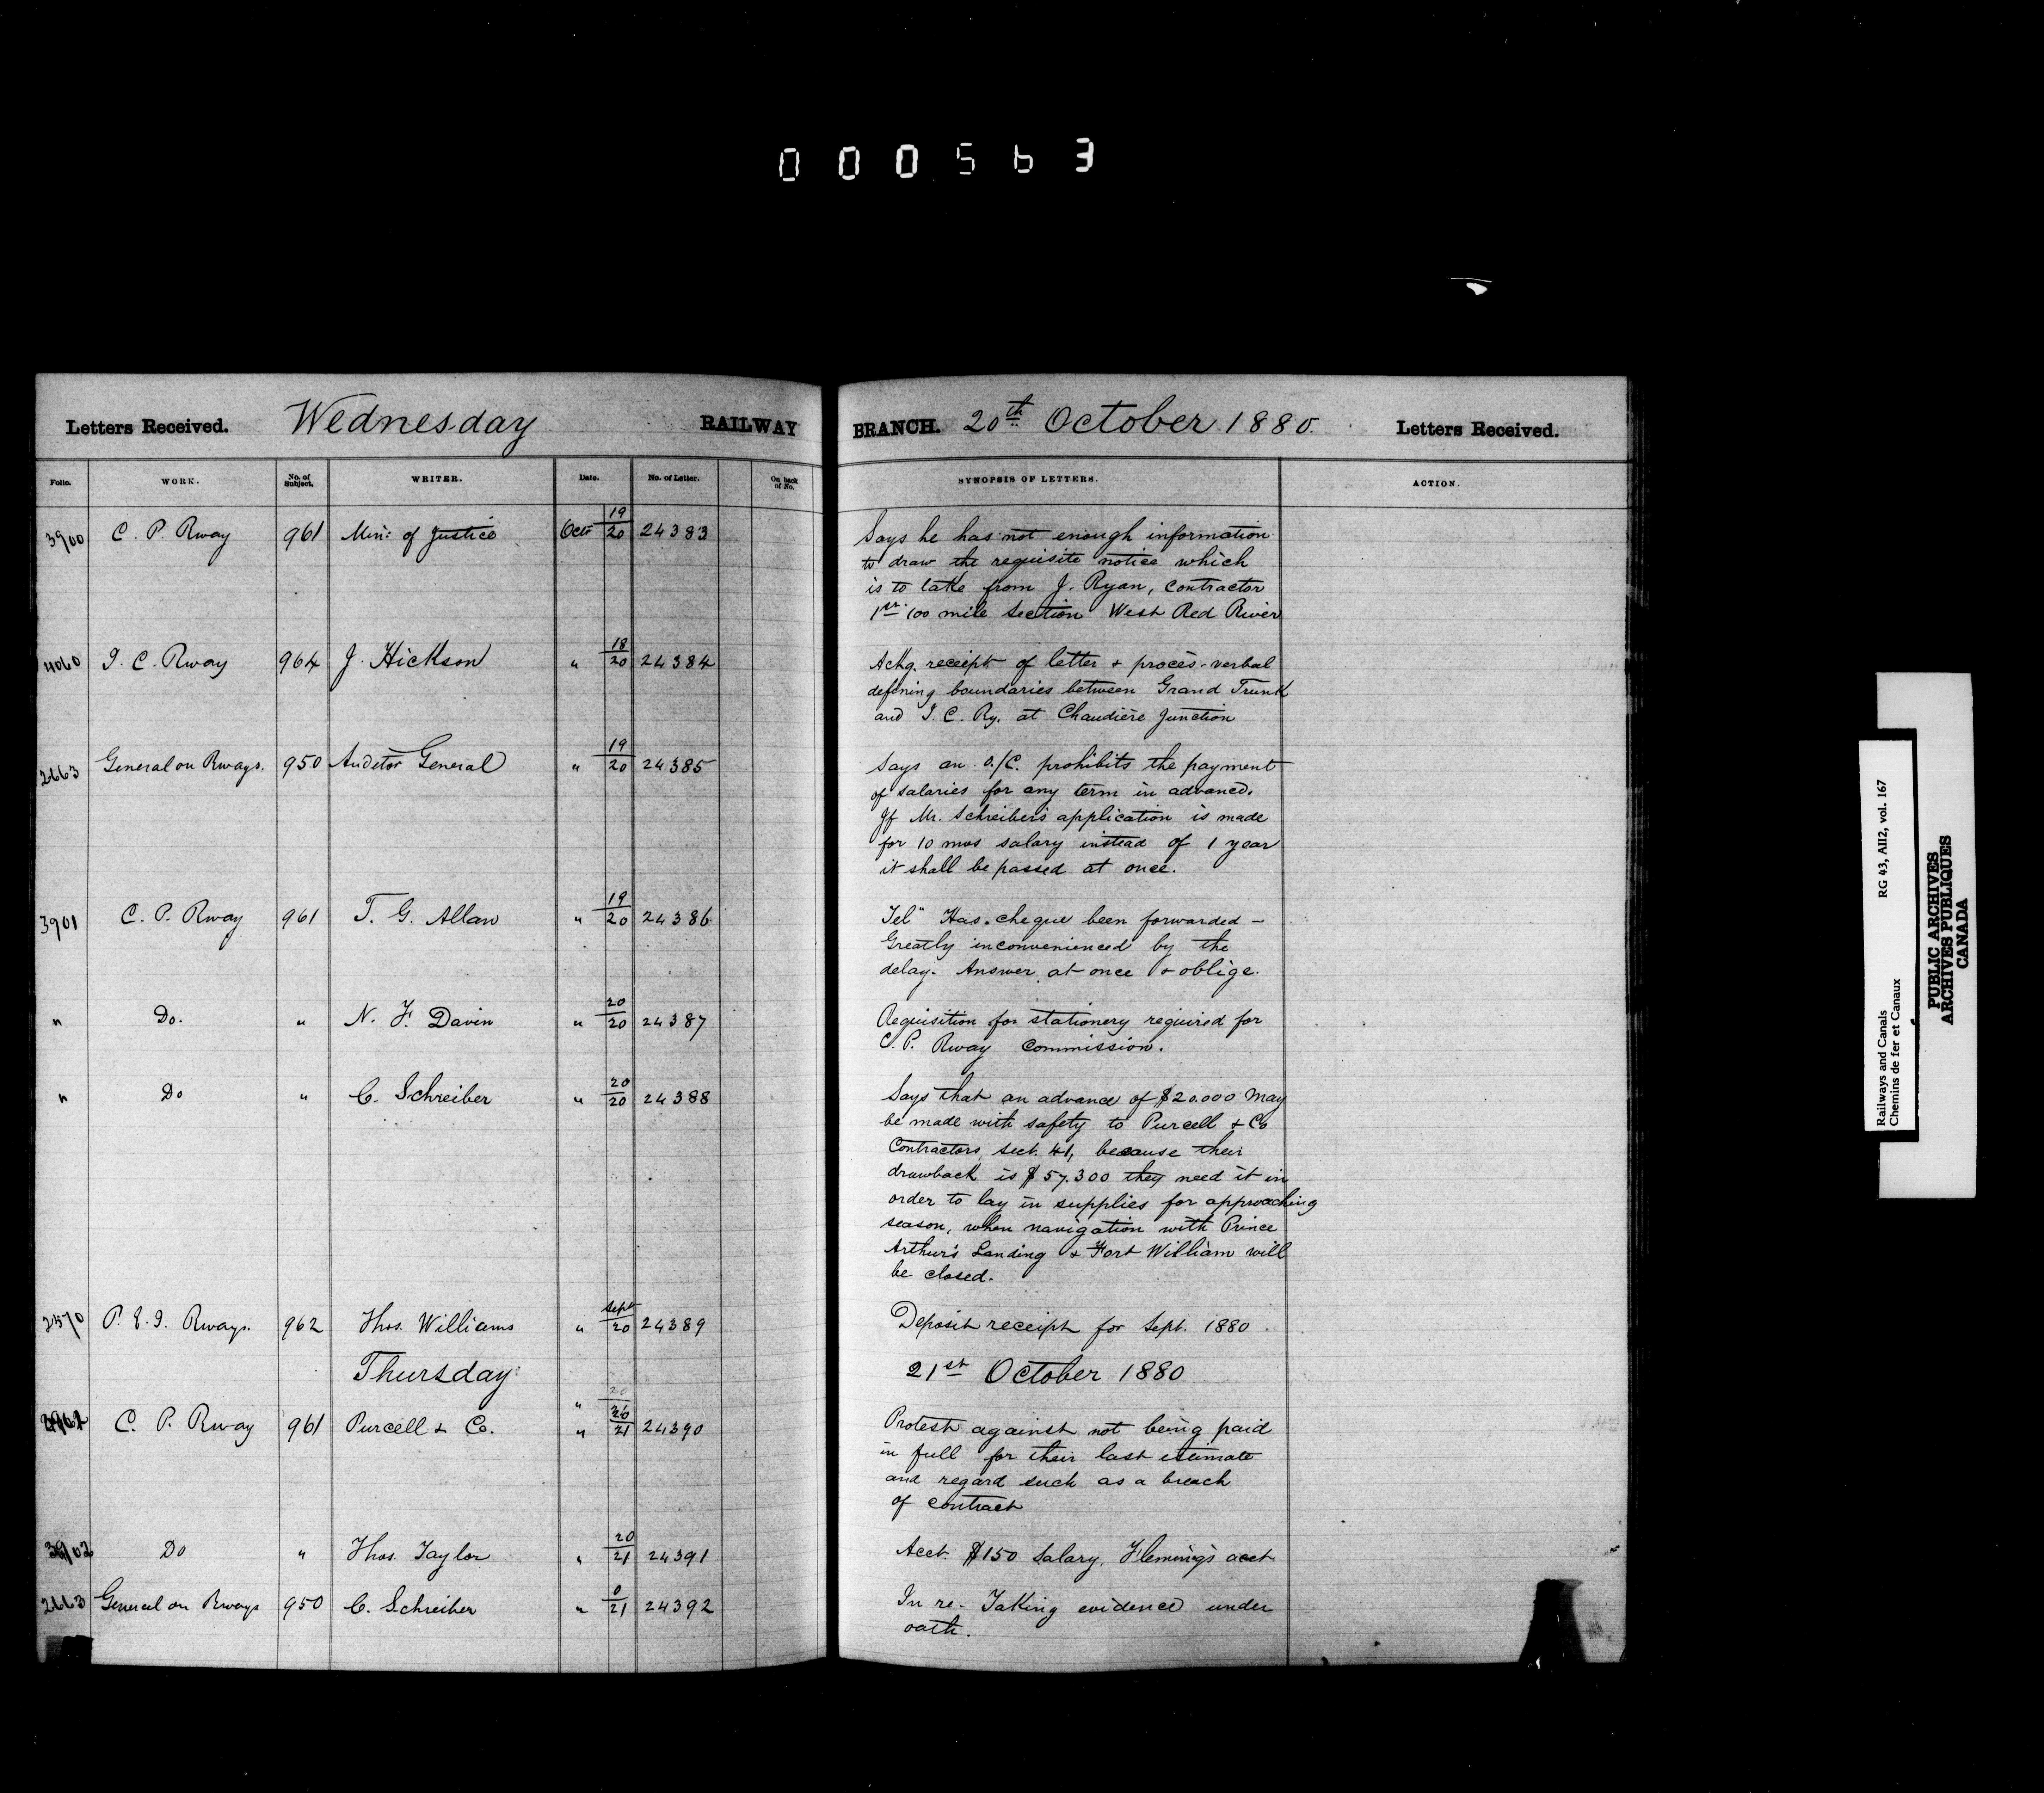 000563
Letters Received. Wednesday RAILWAY BRANCH. 20th October 1880. Letters Received.
Folio. WORK. No. of Subject. WRITER. Date. No. of Letter. On back of No. SYNOPSIS OF LETTERS. ACTION.
3900 C. P. Rway 961 Min: of Justice Octr 19/20 24383 Says he has not enough information
to draw the requisite notice which
is to take from J. Ryan, Contractor
1st 100 mile Section West Red River
4060 I. C. Rway 964 J. Hickson " 18/20 24384 Ackg. receipt of letter + procès-verbal
defining boundaries between Grand Trunk
and I. C. Ry. at Chaudière Junction
2663 General on Rways. 950 Auditor General " 19/20 24385 Says an O/C. prohibits the payment
of salaries for any term in advance.
If Mr. Schreiber's application is made
for 10 mos salary instead of 1 year
it shall be passed at once.
3901 C. P. Rway 961 T. G. Allan " 19/20 24386 Tel" Has cheque been forwarded —
Greatly inconvenienced by the
delay. Answer at once + oblige.
" Do. " N. F. Davin " 20/20 24387 Requisition for stationery required for
C. P. Rway Commission.
" Do " C. Schreiber " 20/20 24388 Says that an advance of $20.000 may
be made with safety to Purcell + Co
Contractors, sect. 41, because their
drawback is $57.300 they need it in
order to lay in supplies for approaching
season, when navigation with Prince
Arthur's Landing + Fort William will
be closed.
2570 P. E. I. Rways. 962 Thos. Williams " Sept/20 24389 Deposit receipt for Sept. 1880.
Thursday 21st October 1880
C. P. Rway 961 Purcell + Co. " 20/21 24390 Protest against not being paid
in full for their last estimate
and regard such as a breach
of contract
3902 Do " Thos. Taylor " 20/21 24391 Acct. $150 Salary, Fleming's acct
2663 General on Rways 950 C. Schreiber " 0/21 24392 In re- Taking evidence under
oath.
Railways and Canals RG 43, AII2, vol. 167
Chemins de fer et Canaux
PUBLIC ARCHIVES
ARCHIVES PUBLIQUES
CANADA